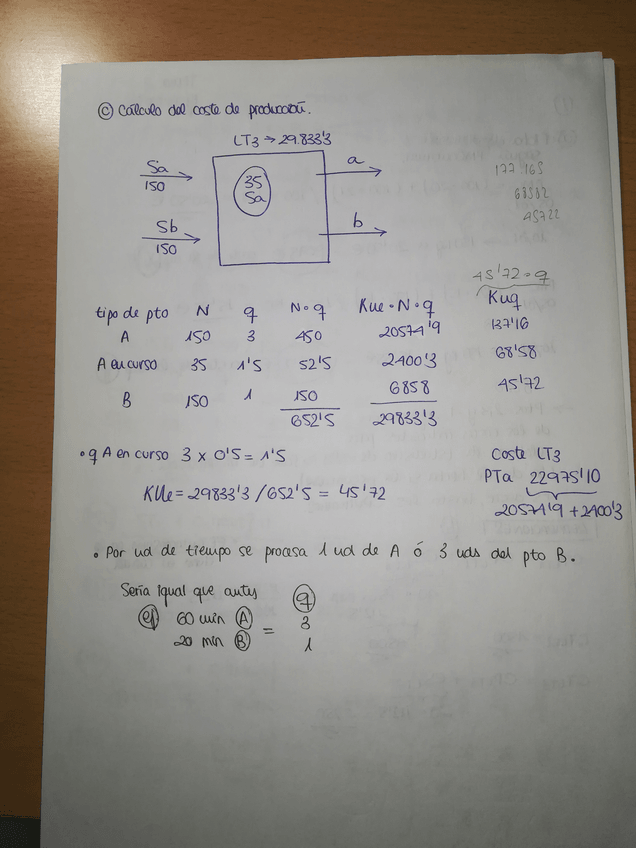 © Cálculo del coste de producción.
LT3 → 29.833'3
Sa
150
35
Sa
a
Sb
150
b
177.165
68582
45722
45'72 · q
tipo de pto N q N · q Kue · N · q Kuq
A 150 3 450 20574'9 137'16
A en curso 35 1'5 52'5 2400'3 68'58
B 150 1 150 6858 45'72
652'5 29833'3
• q A en curso 3 x 0'5 = 1'5
KUe = 29833'3 / 652'5 = 45'72
Coste LT3
PTa 22975'10
20574'9 + 2400'3
• Por ud de tiempo se procesa 1 ud de A ó 3 uds del pto B.
Sería igual que antes q
ej 60 min A = 3
20 min B 1